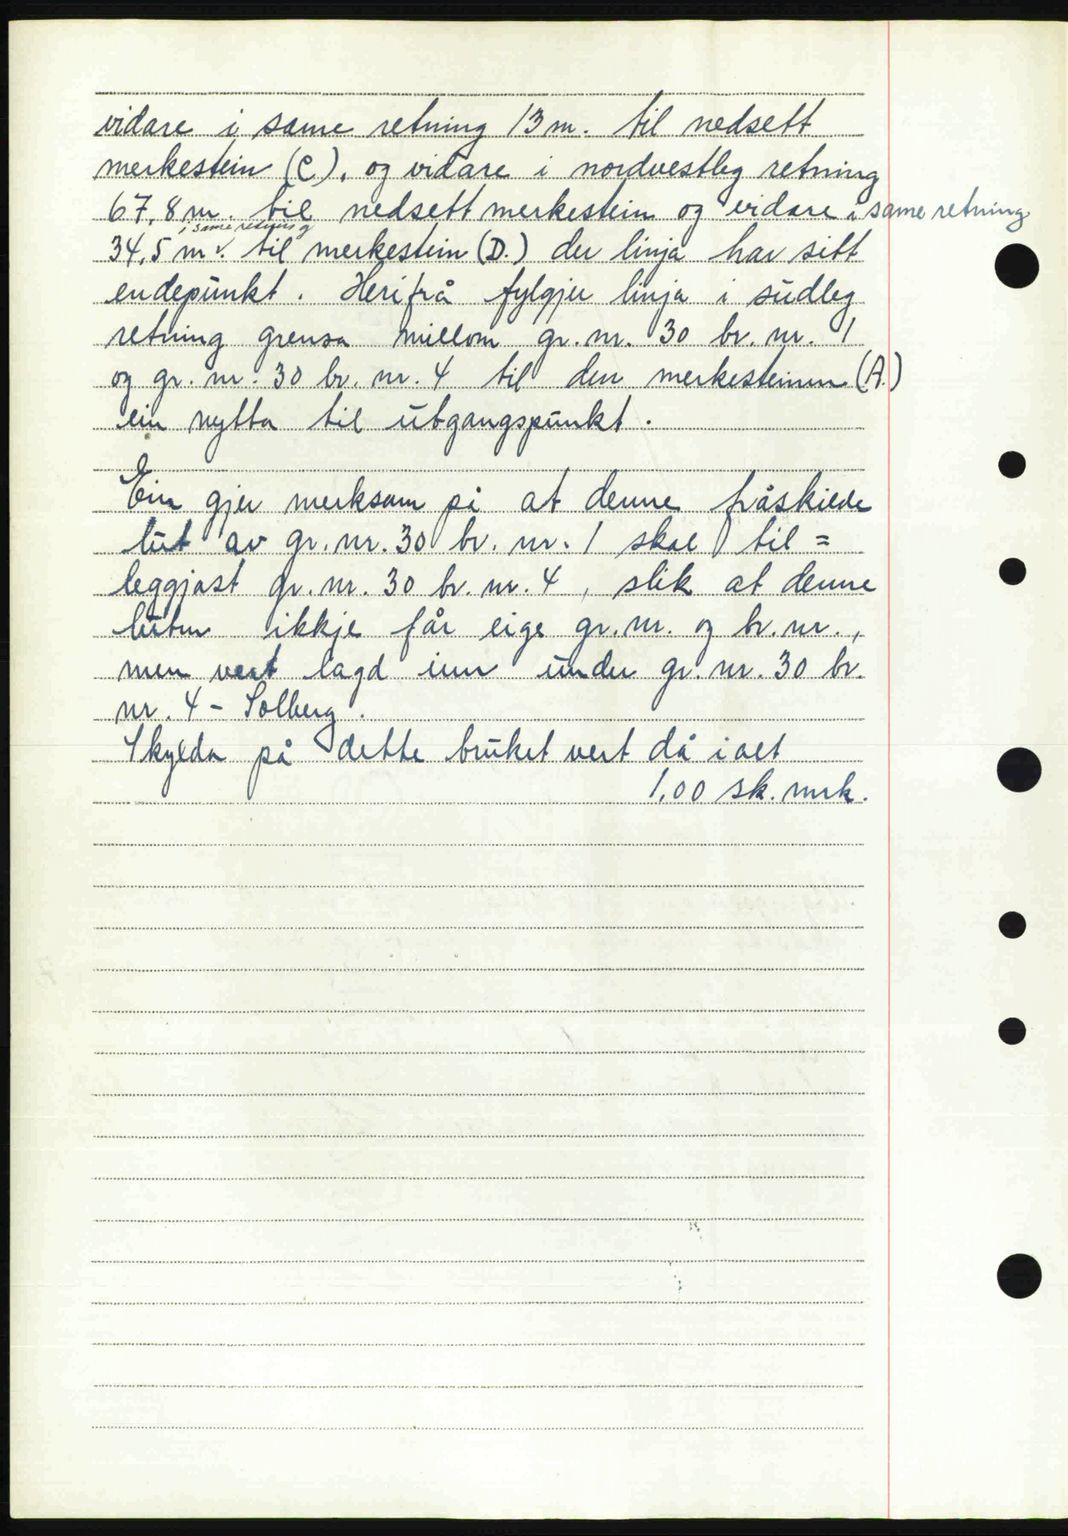 vidare i same retning 13 m. til nedsett
merkestein (C), og vidare i nordvestleg retning
67,8 m. til nedsett merkestein og vidare i same retning
i same retning
34,5 m. til merkestein (D.) der linja har sitt
endepunkt. Herifrå fylgjer linja i sudleg
retning grensa millom gr. nr. 30 br. nr. 1
og gr. nr. 30 br. nr. 4 til den merkesteinen (A.)
ein nytta til utgangspunkt.
Ein gjer merksam på at denne fråskilde
lut av gr. nr. 30 br. nr. 1 skal til =
leggjast gr. nr. 30 br. nr. 4, slik at denne
luten ikkje får eige gr. nr. og br. nr.,
men vert lagd inn under gr. nr. 30 br.
nr. 4 - Solberg.
Skylda på dette bruket vert då i alt
1,00 sk. mrk.